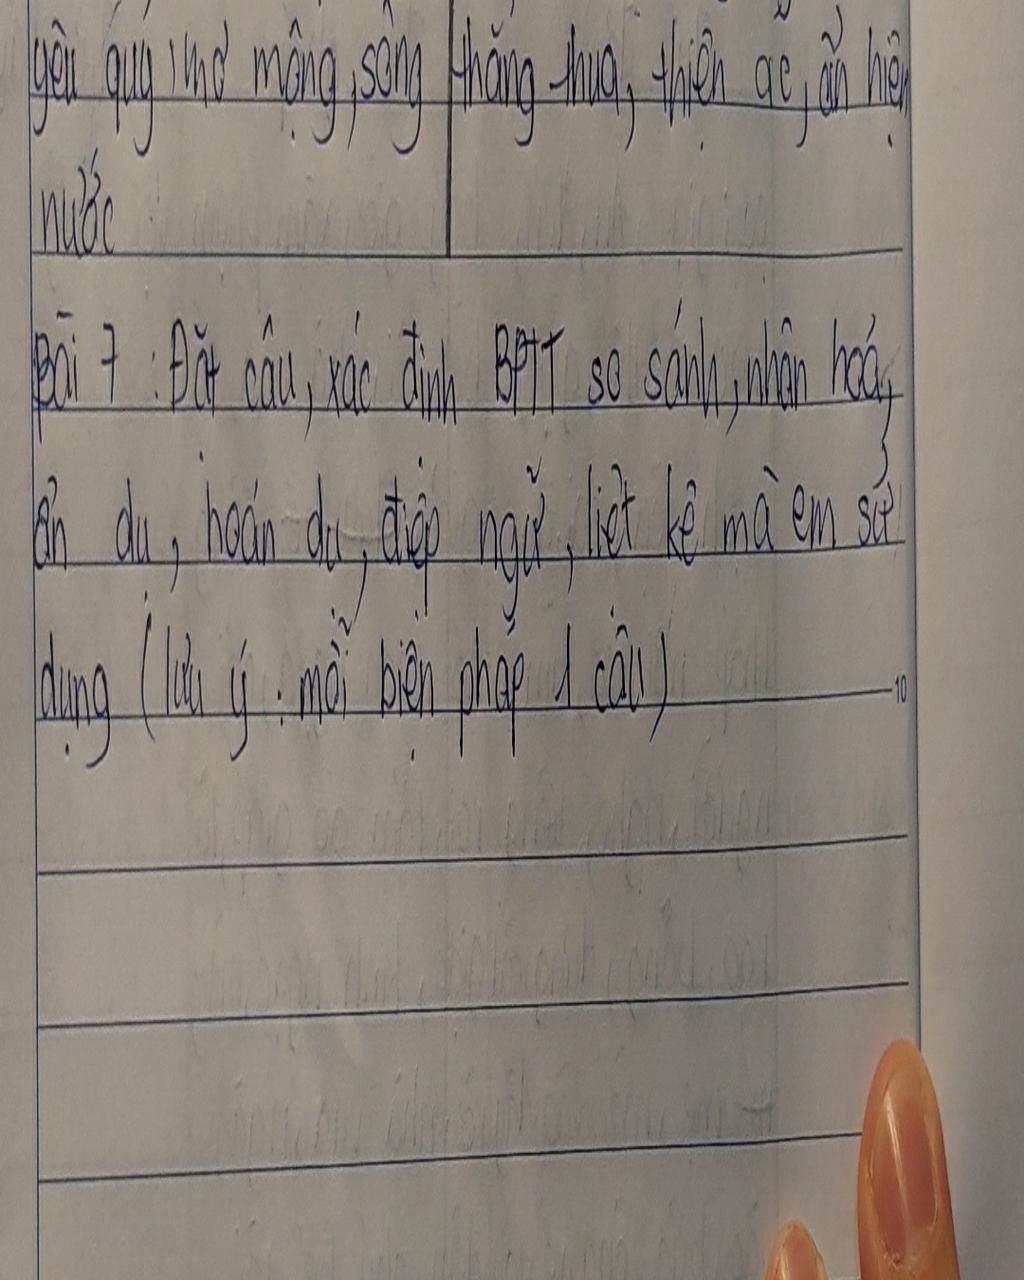 yêu quý, mơ mộng, sông
nước
thắng thua, thiện ác, ẩn hiện
Bài 7 : Đặt câu, xác định BPTT so sánh, nhân hoá,
ẩn dụ, hoán dụ, điệp ngữ, liệt kê mà em sử
dụng (lưu ý : mỗi biện pháp 1 câu)
10